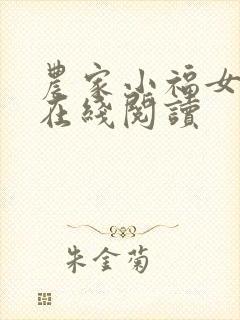 農家小福女
在綫閱讀
朱金菊